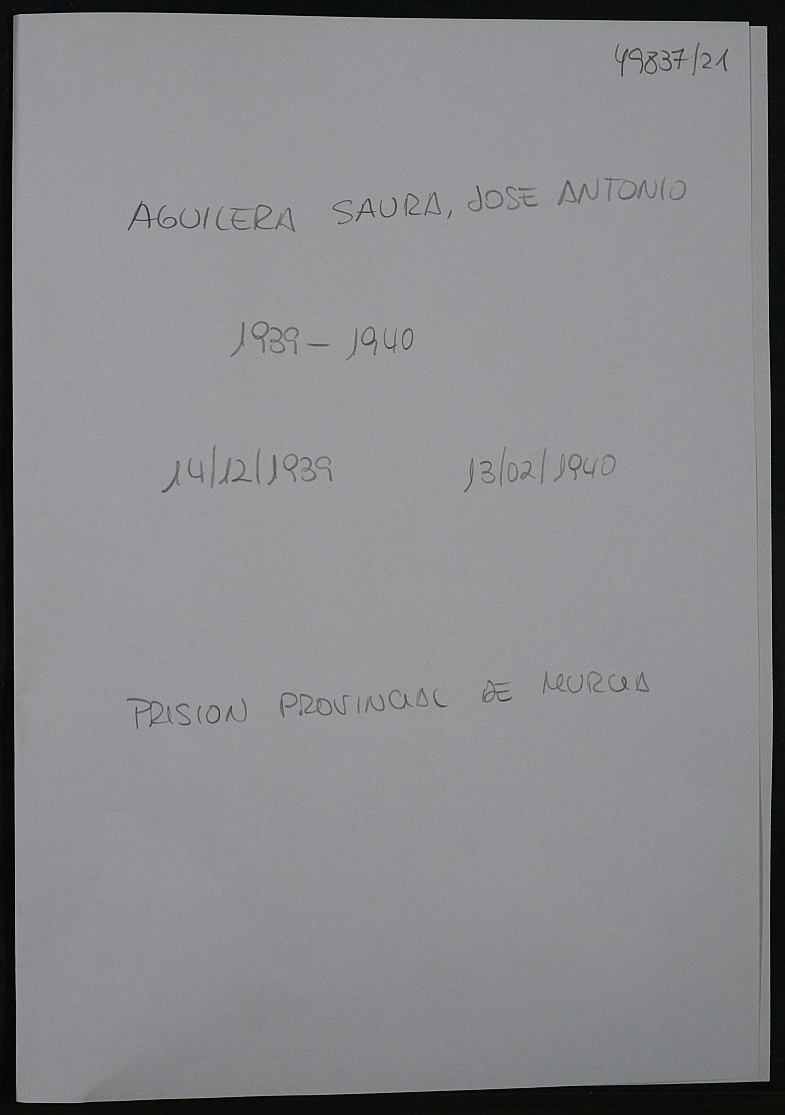 49837/21
AGUILERA SAURA, JOSE ANTONIO
1939 - 1940
14/12/1939 13/02/1940
PRISION PROVINCIAL DE MURCIA